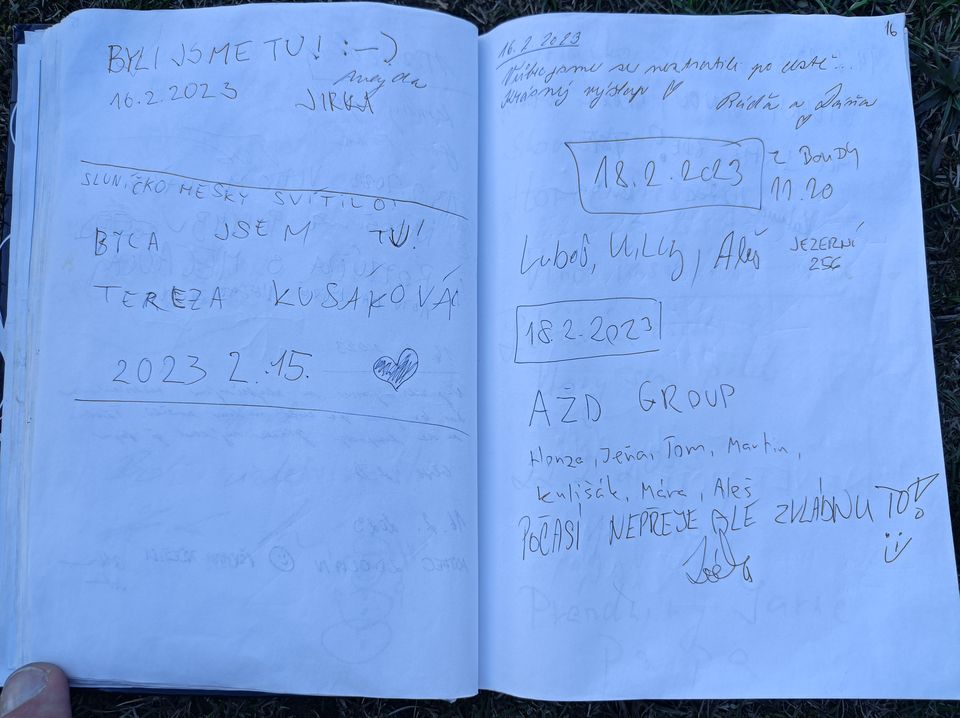 BYLI JSME TU! :-)
Majda
16.2.2023 JIRKA
SLUNÍČKO HESKY SVÍTILO!
BYLA JSEM TU!
TEREZA KUSAKOVÁ
2023 2.15.
16
16.2 2023
se neztratili po cestě...
Krásnej výstup ♡
Ráďa a Dáša
18.2.2023 z BOUDY
11.20
Luboš, Willy, Aleš JEZERNÍ
256
18.2.2023
AŽD GROUP
Honza, Jeňa, Tom, Martin,
Kulišák, Mára, Aleš
POČASÍ NEPŘEJE ALE ZVLÁDNU TO!